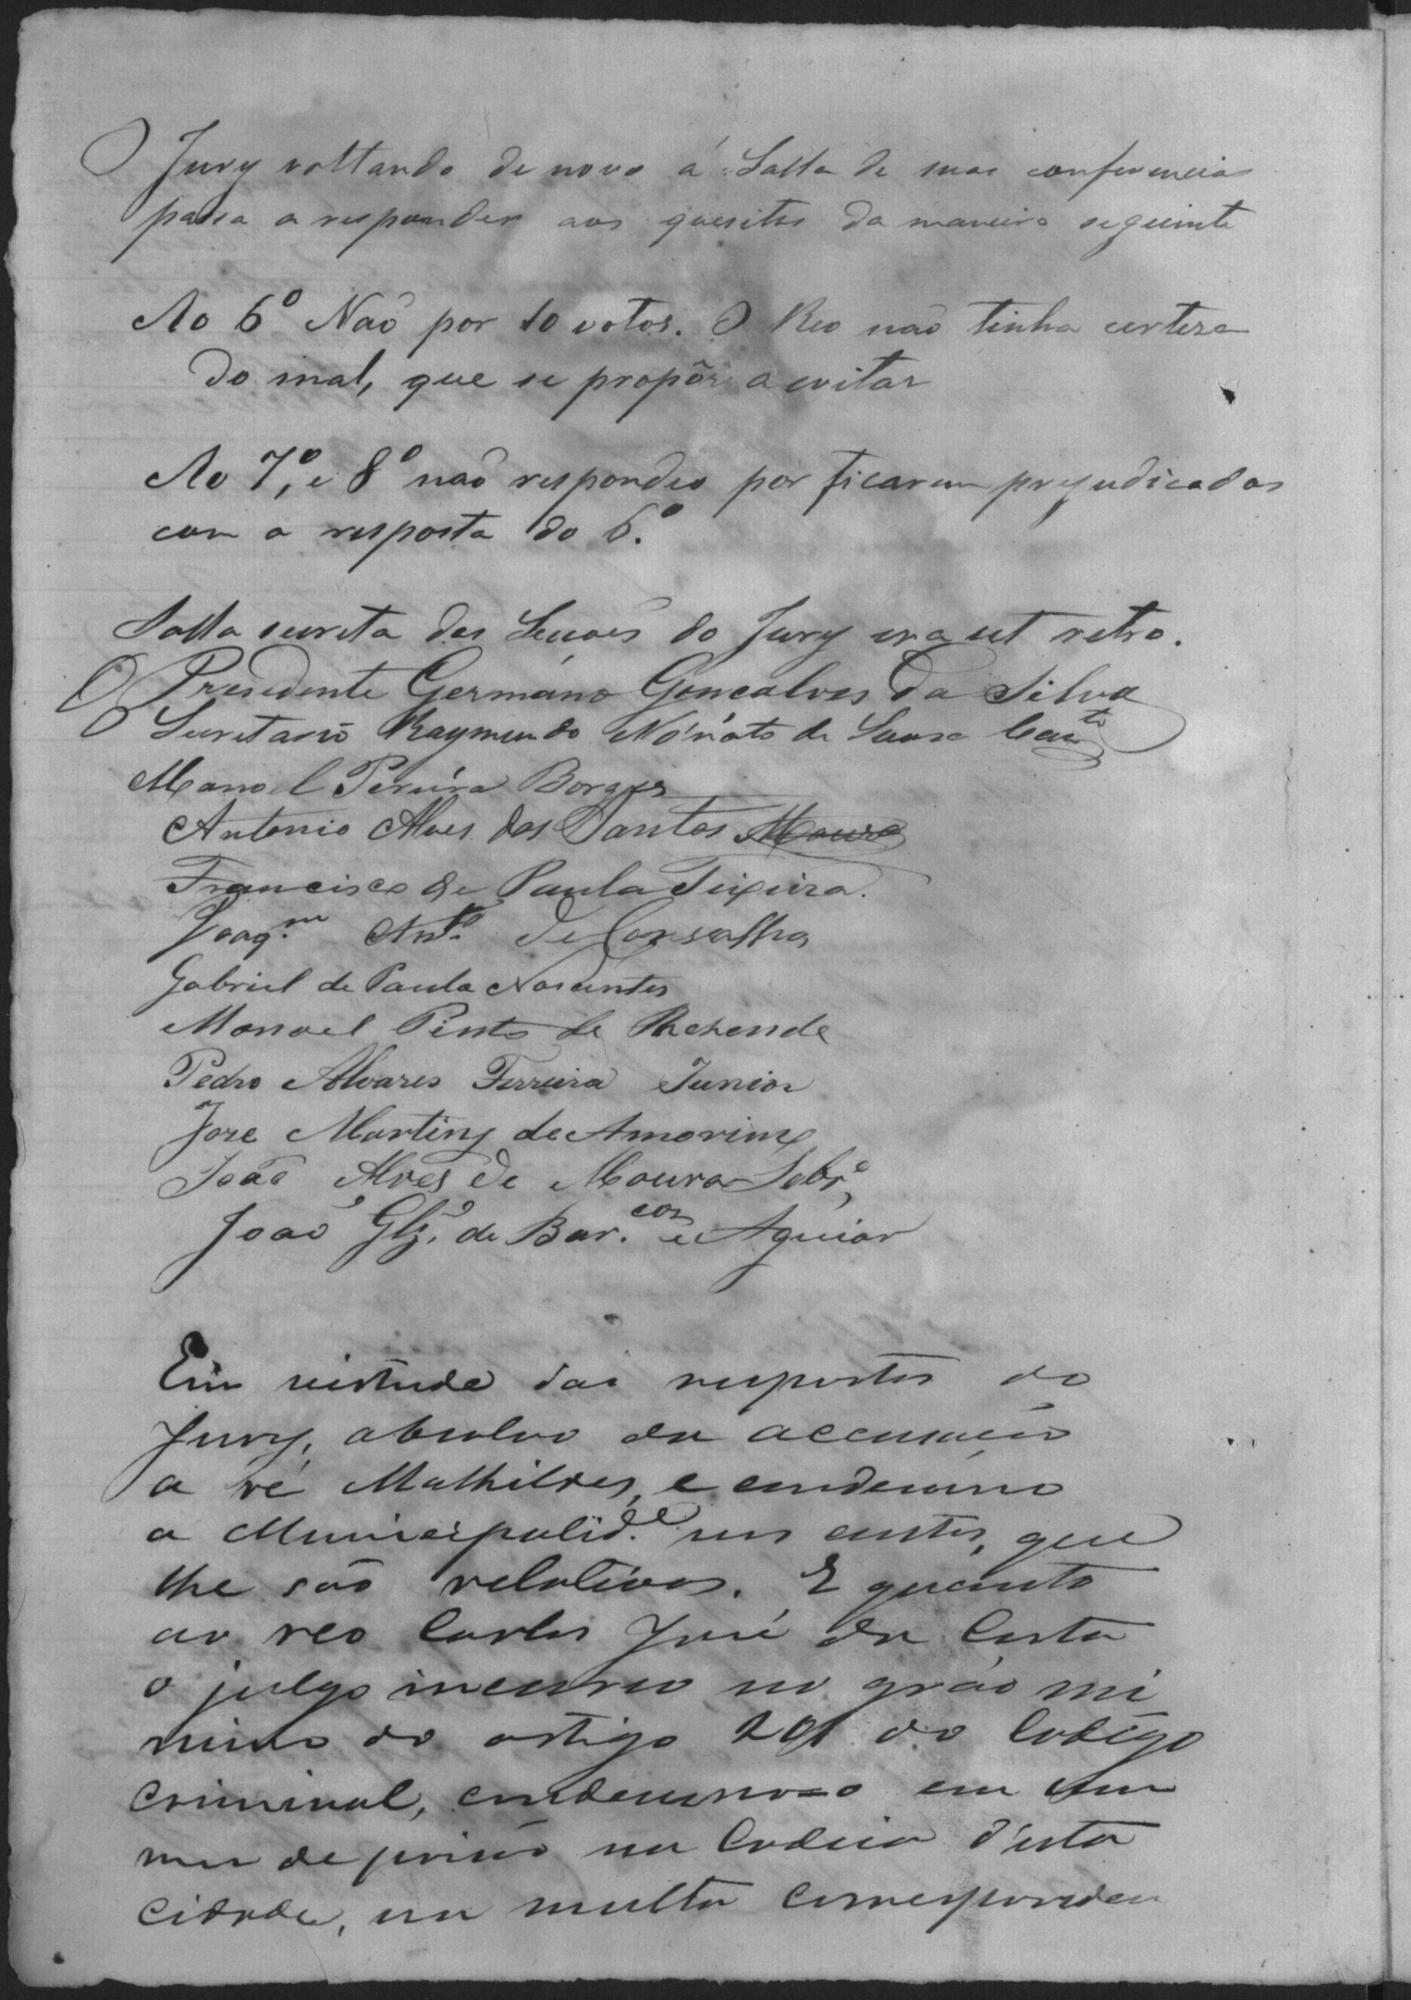 O Jury voltando de novo á Salla de suas conferencias
passa a responder aos quesitos da maneira seguinte
Ao 6º Naõ por 10 votos. O Reo naõ tinha certesa
do mal, que se propôs a evitar
Ao 7º, e 8º naõ respondeo por ficarem prejudicados
com a resposta do 6.º
Salla secreta das Secoẽs do Jury era ut retro.
O Presidente Germano Goncalves da Silva
O Secretario Raymundo Nónato de Sousa
Manoel Pereira Borges
Antonio Alves dos Santos Moura
Francisco de Paula Teixeira.
Joaq.m Ant.o de Carvalho
Gabriel de Paula
Manoel Pinto de Rhesende
Pedro Alvares Ferreira Junior
Jose Martins de Amorim
João Alves de Moura Sobr.o
Joaõ Glz. de Bar.cos e Aguiar
Em virtude das respostas do
Jury, absolvo da accusação
a ré Mathildes, e condemno
a Municipalid.e nas custas, que
lhe são relativas. E quanto
ao reo Carlos José da Costa
o julgo incurso no gráo mi
nimo do artigo 201 do Codigo
Criminal, condemno-o em um
mes de prisão na Cadeia d'esta
Cidade, na multa corresponden